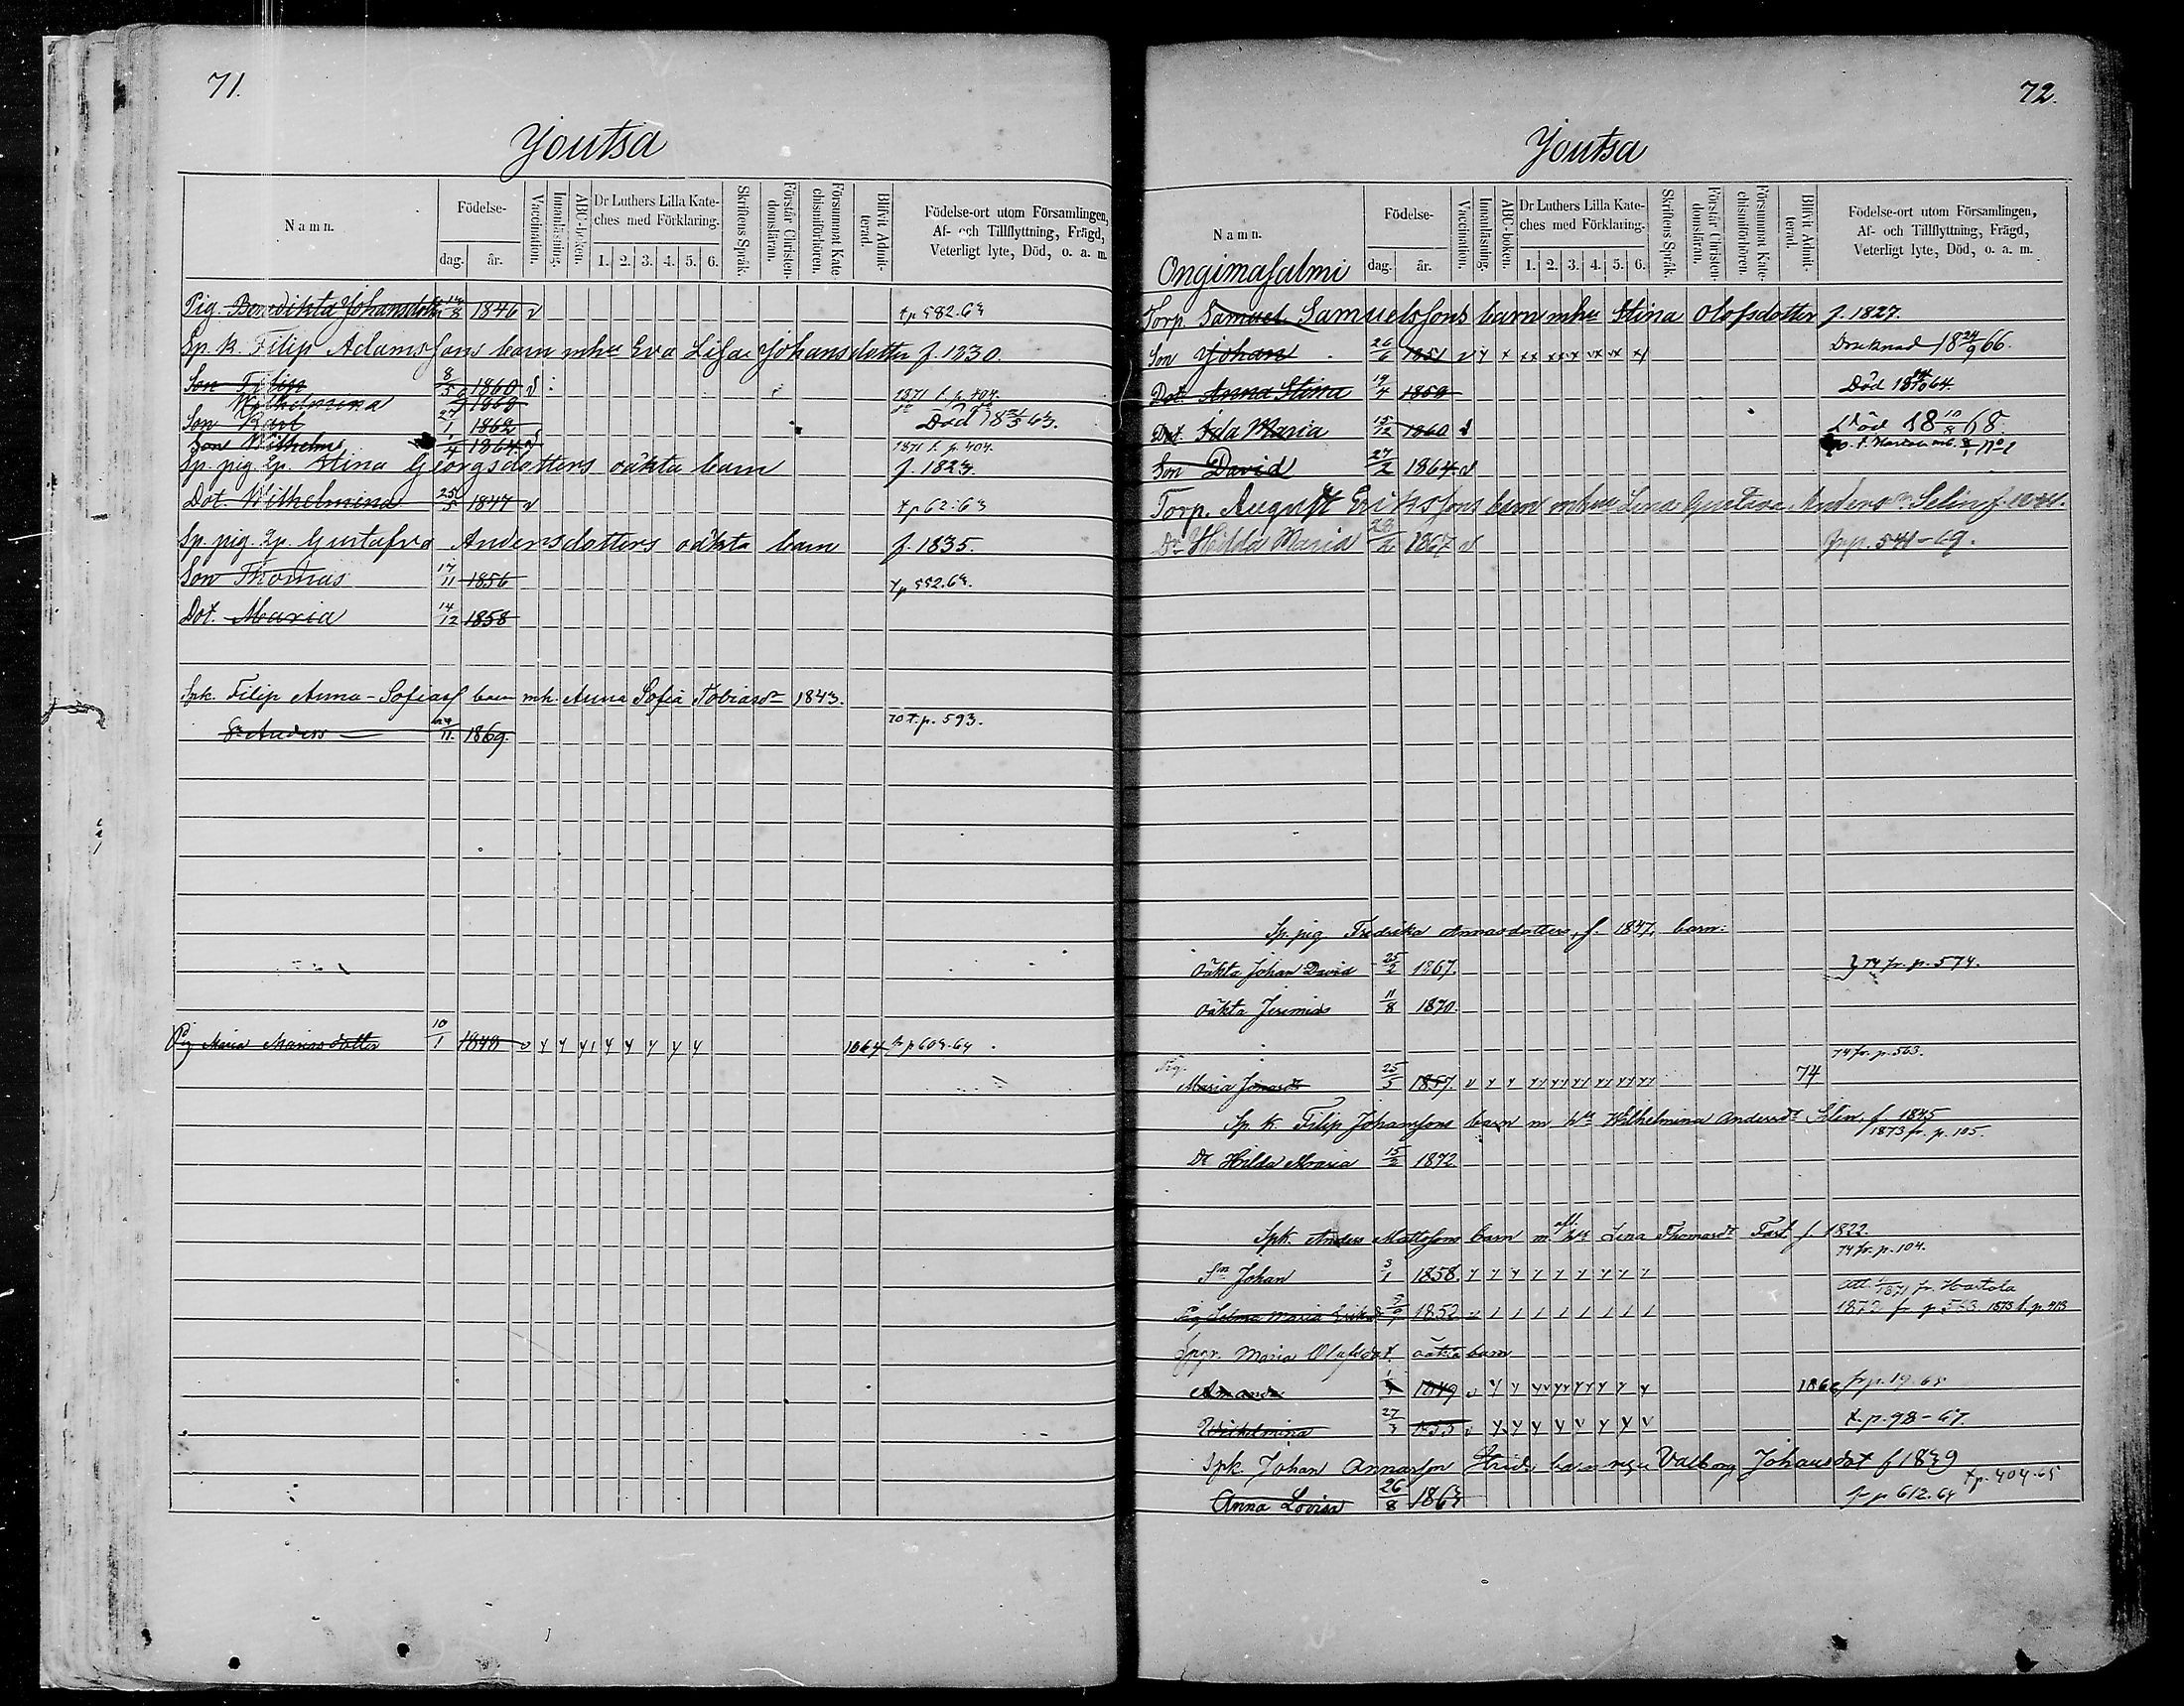 71.
Joutsa
Namn.
Födelse-
dag. år.
Vaccination.
Innanläsning.
ABC-boken.
Dr Luthers Lilla Kate-
ches med Förklaring.
1. 2. 3. 4. 5. 6.
Skriftens Språk.
Förstår Christen-
domsläran.
Försummat Kate-
chismiförhören.
Blifvit Admit-
terad.
Födelse-ort utom Församlingen,
Af- och Tillflyttning, Frägd,
Veterligt lyte, Död, o. a. m.
Pig. Benedikta Johansdotter 8 1846 v t.p 582.63
Sp. k. Filip Adamssons barn mhu Eva Lisa Johansdotter f. 1830.
Son Filip 8/5 1860 v 1871 t. p. 404.
Wilhelmina 1868
Son Karl 27/1 1862 Död 18 63.
Son Wilhelm 1/4 1864 v 1871 t. p. 404.
Sp. pig. Stina Georgsdotters oäkta barn f. 1823.
Dot. Wilhelmina 25/5 1847 v t.p 62.63
Sp. pig. Gustafva Andersdotters oäkta barn f. 1835.
Son Thomas 17/11 1856 t.p 552.63.
Dot. Maria 14/12 1858
Spk. Filip Anna-Sofiasf barn mh. Anna Sofia Tobiasdr 1843.
Sn Anders 11. 1869. 70 t.p. 593.
Pig Maria Mariasdotter 10/1 1848 v y y y1 y y y y y 1864 fr p 603.64
72.
Joutsa
Namn.
Födelse-
dag. år.
Vaccination.
Innanläsning.
ABC-boken.
Dr Luthers Lilla Kate-
ches med Förklaring.
1. 2. 3. 4. 5. 6.
Skriftens Språk.
Förstår Christen-
domsläran.
Försummat Kate-
chismiförhören.
Blifvit Admit-
terad.
Födelse-ort utom Församlingen,
Af- och Tillflyttning, Frägd,
Veterligt lyte, Död, o. a. m.
Ongimasalmi
Torp. Samuel Samuelssons barn mhu Stina Olofsdotter f. 1827.
Son Johan 26/6 1851 v y x xx xx x xx xx xy Drucknad 18 24/9 66.
Dot. Anna Stina 19/4 1859 Död 18 64.
Dot. Ida Maria 15/12 1860 v Död 18 10/8 68.
Son David 27/2 1864 v
Torp. August Erikssons barn mhu Lena Gustava Andersdr Selin f.
Dr Hilda Maria 23/2 1867 v fr p. 541-69.
Sp. pig Fredrika Annasdotters, f. 1847, barn:
oäkta Johan David 25/2 1867. } 74 fr. p. 574.
oäkta Jeremias 11/8 1870.
Pig. 74 fr. p. 563.
Maria Jonasdr 25/5 1857. v y y yy yy yy yy yy yy 74
Sp. k. Filip Johanssons barn m. hu Wilhelmina Andersdr Selin f. 1845
1873 fr. p. 105.
Dr Hilda Maria 15/2 1872
Spk. Anders Mattssons barn m. afl. hu Lena Thomasdr Fast f. 1822.
74 fr. p. 104.
Sn Johan 3/1 1858. y y y y y y y y y
Att. 1871 fr. Hartola
Pig Selma Maria Eriksdr 1852 v 1 1 1 1 1 1 1 1 1873 t. p. 413
Spgr. Maria Olofsdot. oäkta barn
Amanda 1849 v y y yv yy yy y y y fr p. 19.65
Wilhelmina 27/3 1853 v y y y y v y y v t. p. 98-67.
Spk. Johan Annasson Strid barn mhu Valborg Johansdot f 1839
t.p. 404.65
Anna Lovisa 26/8 1863 fr p 612.64